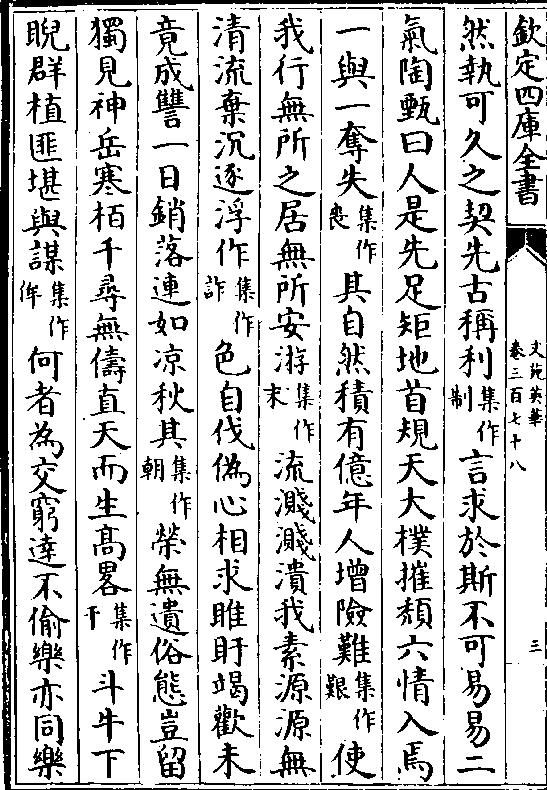 欽定四庫全書
文苑英華
卷三百七十八
三
然執可久之契先古稱利集作制言求於斯不可易易二
氣陶甄曰人是先足矩地首規天大樸摧頽六情入焉
一與一奪失集作喪其自然積有億年人增險難集作艱使
我行無所之居無所安游集作末流濺濺潰我素源源無
清流棄沉逐浮作集作詐色自伐偽心相求睢盱竭歡未
竟成讐一日銷落連如凉秋其集作朝榮無遺俗態豈留
獨見神岳寒栢千尋無儔直天而生高畧集作干斗牛下
睨群植匪堪與謀集作侔何者為交窮達不偷樂亦同樂